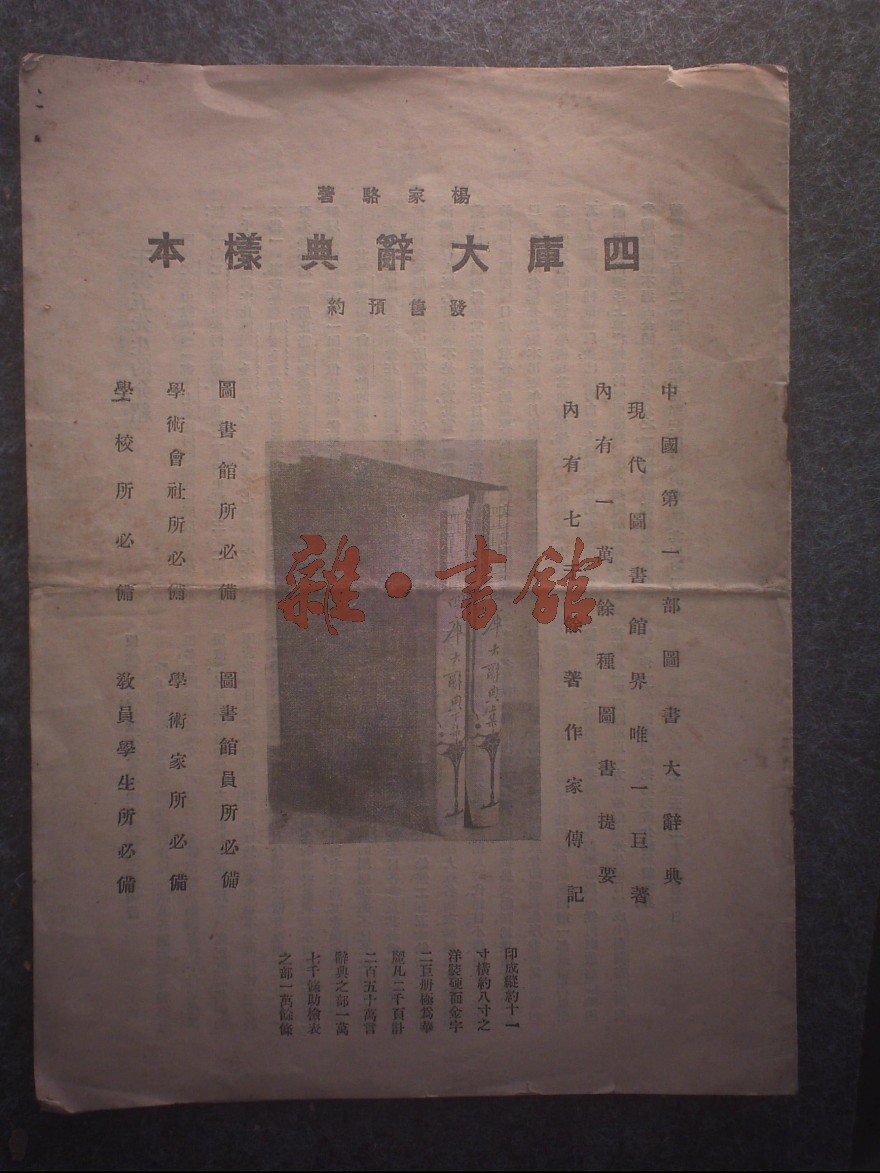 楊家駱著
四庫大辭典樣本
發售預約
中國第一部圖書大辭典
現代圖書館界唯一巨著
內有一萬餘種圖書提要
內有七千餘著作家傳記
圖書館所必備 圖書館員所必備
學術會社所必備 學術家所必備
學校所必備 教員學生所必備
四庫大辭典
雜·書館
印成縱約十一
寸橫約八寸之
洋裝硬面金字
二巨册極爲華
麗凡二千頁計
二百五十萬言
辭典之部一萬
七千條助檢表
之部一萬餘條